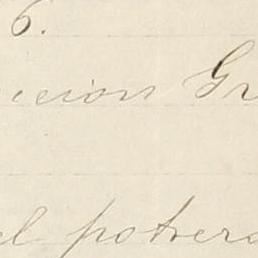 6.
icion Gr
el potrero